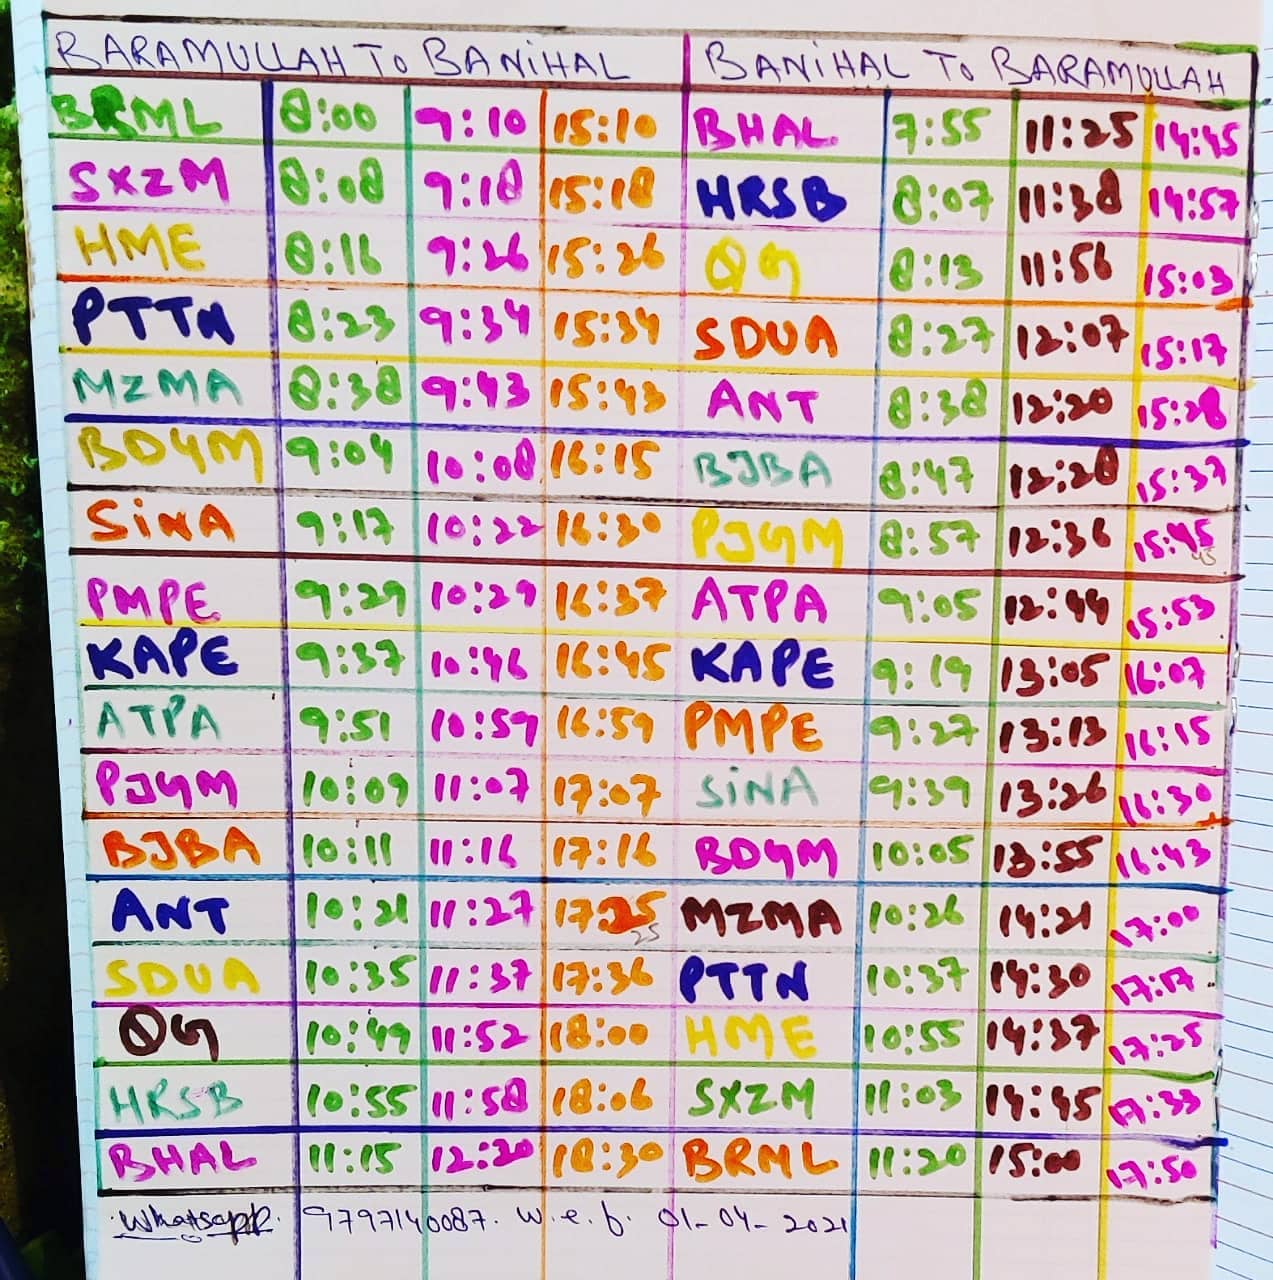 BARAMULLAH TO BANIHAL BANIHAL TO BARAMULLAH
BRML 8:00 9:10 15:10 BHAL 7:55 11:25 14:45
SXZM 8:08 9:18 15:18 HRSB 8:07 11:38 14:57
HME 8:16 9:26 15:26 QG 8:13 11:56 15:03
PTTN 8:23 9:34 15:34 SDUA 8:27 12:07 15:17
MZMA 8:38 9:43 15:43 ANT 8:38 12:20 15:28
BDGM 9:04 10:08 16:15 BJBA 8:47 12:28 15:37
SiNA 9:17 10:22 16:30 PJGM 8:57 12:36 15:45 45
PMPE 9:29 10:29 16:37 ATPA 9:05 12:44 15:53
KAPE 9:37 10:46 16:45 KAPE 9:19 13:05 16:07
ATPA 9:51 10:59 16:59 PMPE 9:27 13:13 16:15
PJGM 10:09 11:07 17:07 SiNA 9:39 13:26 16:30
BJBA 10:11 11:16 17:16 BDGM 10:05 13:55 16:43
ANT 10:21 11:27 17:25 25 MZMA 10:26 14:21 17:00
SDUA 10:35 11:37 17:36 PTTN 10:37 14:30 17:17
QG 10:49 11:52 18:00 HME 10:55 14:37 17:25
HRSB 10:55 11:58 18:06 SXZM 11:03 14:45 17:33
BHAL 11:15 12:20 18:30 BRML 11:20 15:00 17:50
Whatsapp. 9797140087. w.e.f. 01-04-2021